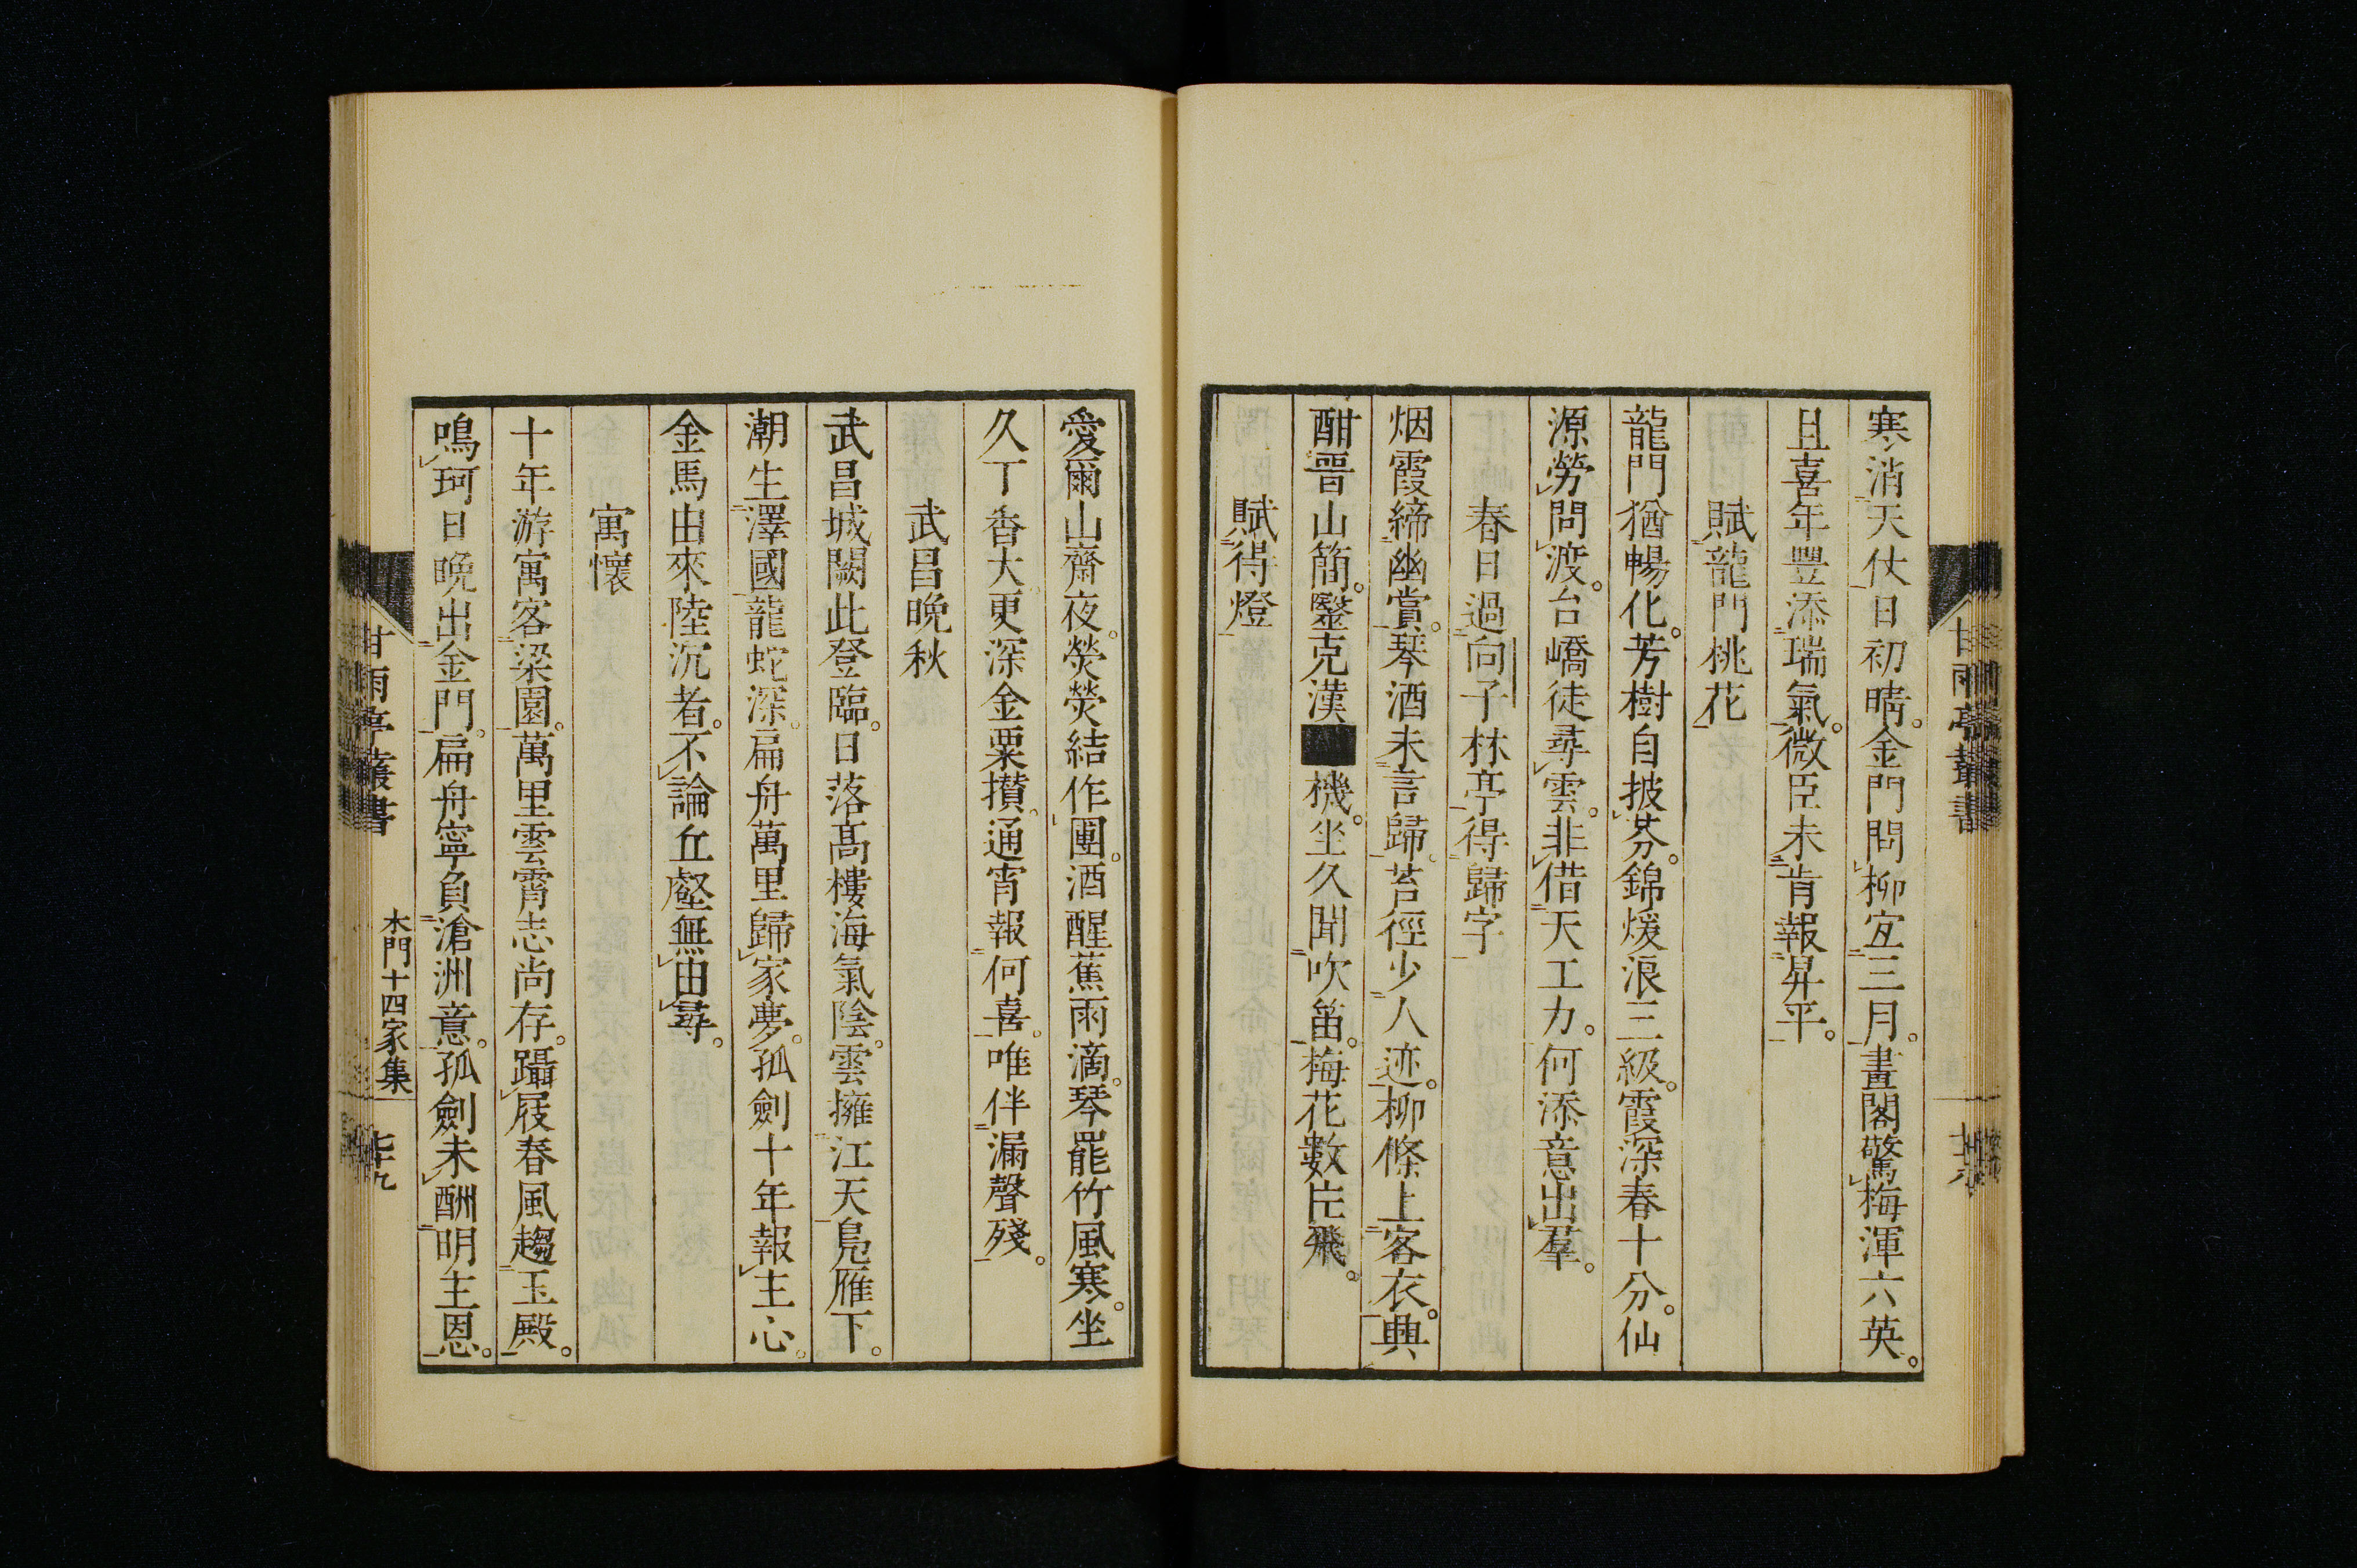 寒消天仗日初晴。金門問柳宜三月。畫閣驚梅渾六英。
且喜年豐添瑞氣。微臣未肯報昇平。
賦龍門桃花
龍門猶暢化。芳樹自披芬。錦煖浪三級。霞深春十分。仙
源勞問渡。台嶠徒尋雲。非借天工力。何添意出羣。
春日過向子林亭得歸字
烟霞締幽賞。琴酒未言歸。苔徑少人迹。柳條上客衣。興
酣晉山簡。鑒克漢■機。坐久聞吹笛。梅花數片飛。
賦得燈
甘雨亭叢書
愛爾山齋夜。熒熒結作團。酒醒蕉雨滴。琴罷竹風寒。坐
久丁香大。更深金粟攢。通宵報何喜。唯伴漏聲殘。
武昌晚秋
武昌城闕此登臨。日落高樓海氣陰。雲擁江天鳧雁下。
潮生澤國龍蛇深。扁舟萬里歸家夢。孤劍十年報主心。
金馬由來陸沉者。不論丘壑無由尋。
寓懷
十年游寓客梁園。萬里雲霄志尚存。躡屐春風趨玉殿。
鳴珂日晚出金門。扁舟寧負滄洲意。孤劍未酬明主恩。
甘雨亭叢書
木門十四家集